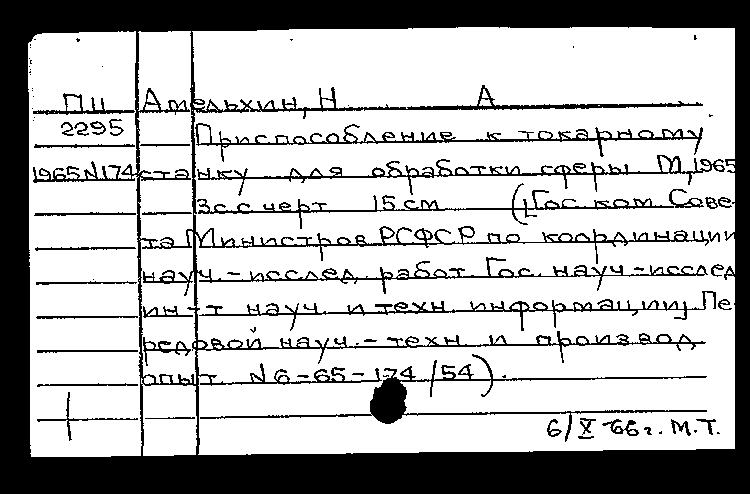 ПII Амельхин, Н А
2295 Приспособление к токарному
1965N174 станку для обработки сферы М, 1965
3с с черт 15 см ([Гос ком Сове-
та Министров РСФСР по координации
науч-исслед работ. Гос. науч-исслед
ин-т науч. и техн. информации] Пе-
редовой науч.-техн и производ
опыт. N6-65-174/54).
6/X 66г. М.Т.